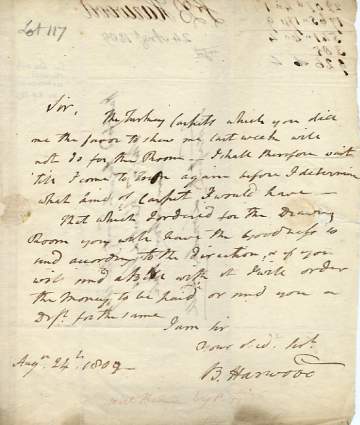 Lot 117
Sir,
The Turkey Carpets which you did
me the favor to shew me last week will
not do for the Room — I shall therefore wait
till I come to Town again before I determine
what kind of Carpet I would have —
That which I ordered for the Drawing
Room you will have the goodness to
send according to the direction, & if you
will send a Bill with it I will order
the Money to be paid, or send you a
Dft. for the same
I am Sir
Your
B. Harwood
Augt. 24th. 1809